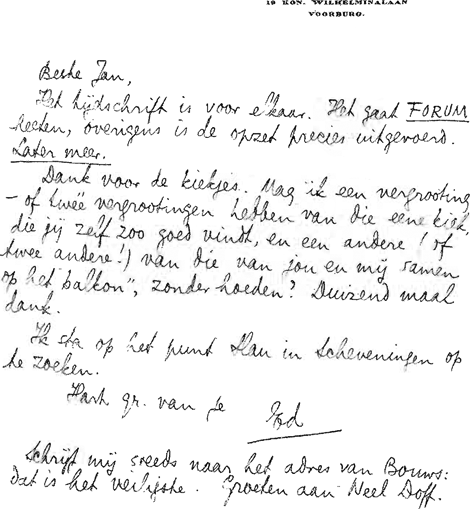 19 KON. WILHELMINALAAN
VOORBURG.
Beste Jan,
Het tijdschrift is voor elkaar. Het gaat FORUM
heeten, overigens is de opzet precies uitgevoerd.
Later meer.
Dank voor de kiekjes. Mag ik een vergrooting
– of twëe vergrootingen hebben van die eene kiek,
die jij zelf zoo goed vindt, en een andere (of
twee andere!) van die van jou en mij samen
op het balkon", zonder hoeden? Duizend maal
dank.
Ik sta op het punt Han in Scheveningen op
te zoeken.
Hart. gr. van je Ed
Schrijf mij steeds naar het adres van Bouws:
dat is het veiligste. Groeten aan Neel Doff.